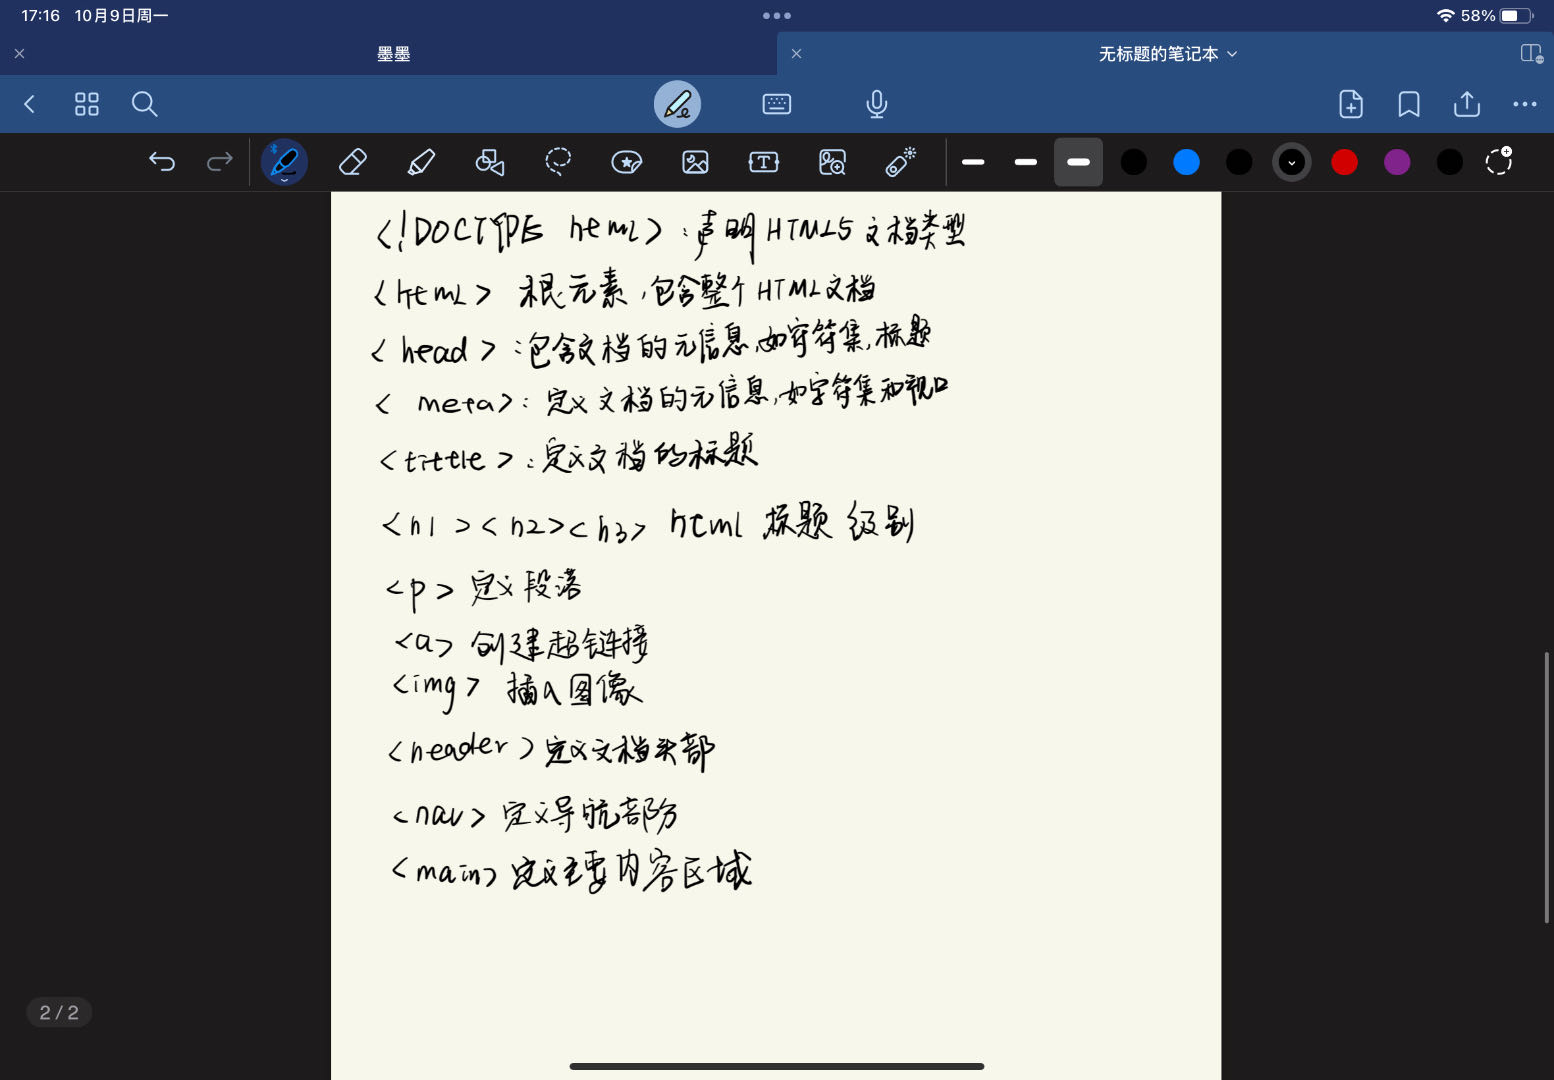 17:16 10月9日周一
58%
墨墨
无标题的笔记本
<!DOCTYPE html>:声明HTML5文档类型
<html> 根元素,包含整个HTML文档
<head>:包含文档的元信息,如字符集,标题
<meta>:定义文档的元信息,如字符集和视口
<tittle>:定义文档的标题
<h1><h2><h3> html 标题级别
<p>定义段落
<a>创建超链接
<img> 插入图像
<header>定义文档头部
<nav>定义导航部分
<main>定义主要内容区域
2/2